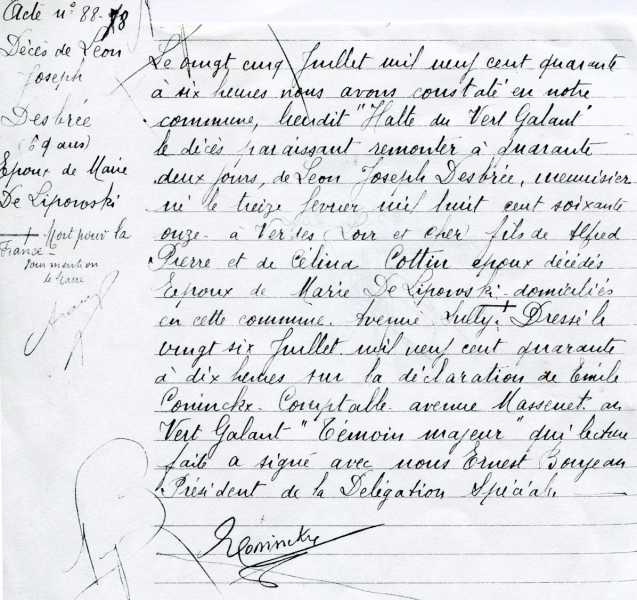 Acte n° 88
Décès de Léon
Joseph
Desbrée
(69 ans)
Epoux de Marie
De Lipowski
Mort pour la
France
pour mention
le Maire
Le vingt cinq Juillet mil neuf cent quarante
à six heures nous avons constaté en notre
commune, lieudit "Halte du Vert Galant"
le décès paraissant remonter à quarante
deux jours, de Léon Joseph Desbrée, menuisier
né le treize février mil huit cent soixante
onze à Verdes Loir et Cher fils de Alfred
Pierre et de Célina Cottin époux décédés
Epoux de Marie De Lipowski domiciliés
en cette commune. Avenue Lully. Dressé le
vingt six Juillet mil neuf cent quarante
à dix heures sur la déclaration de Emile
Coninckx. Comptable avenue Massenet au
Vert Galant "Témoin majeur" qui lecture
faite a signé avec nous Ernest Bourjeau
Président de la Délégation Spéciale
Coninckx